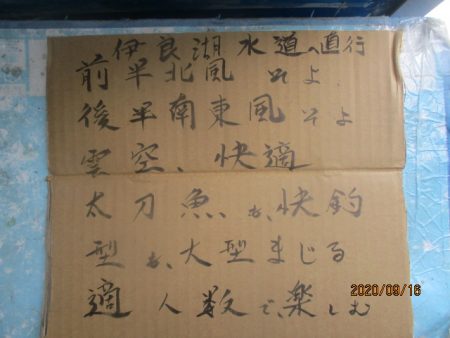 伊良湖水道へ直行
前半北風そよ
後半南東風そよ
雲空、快適
太刀魚も、快釣
型も、大型まじる
適人数で、楽しむ
2020/09/16